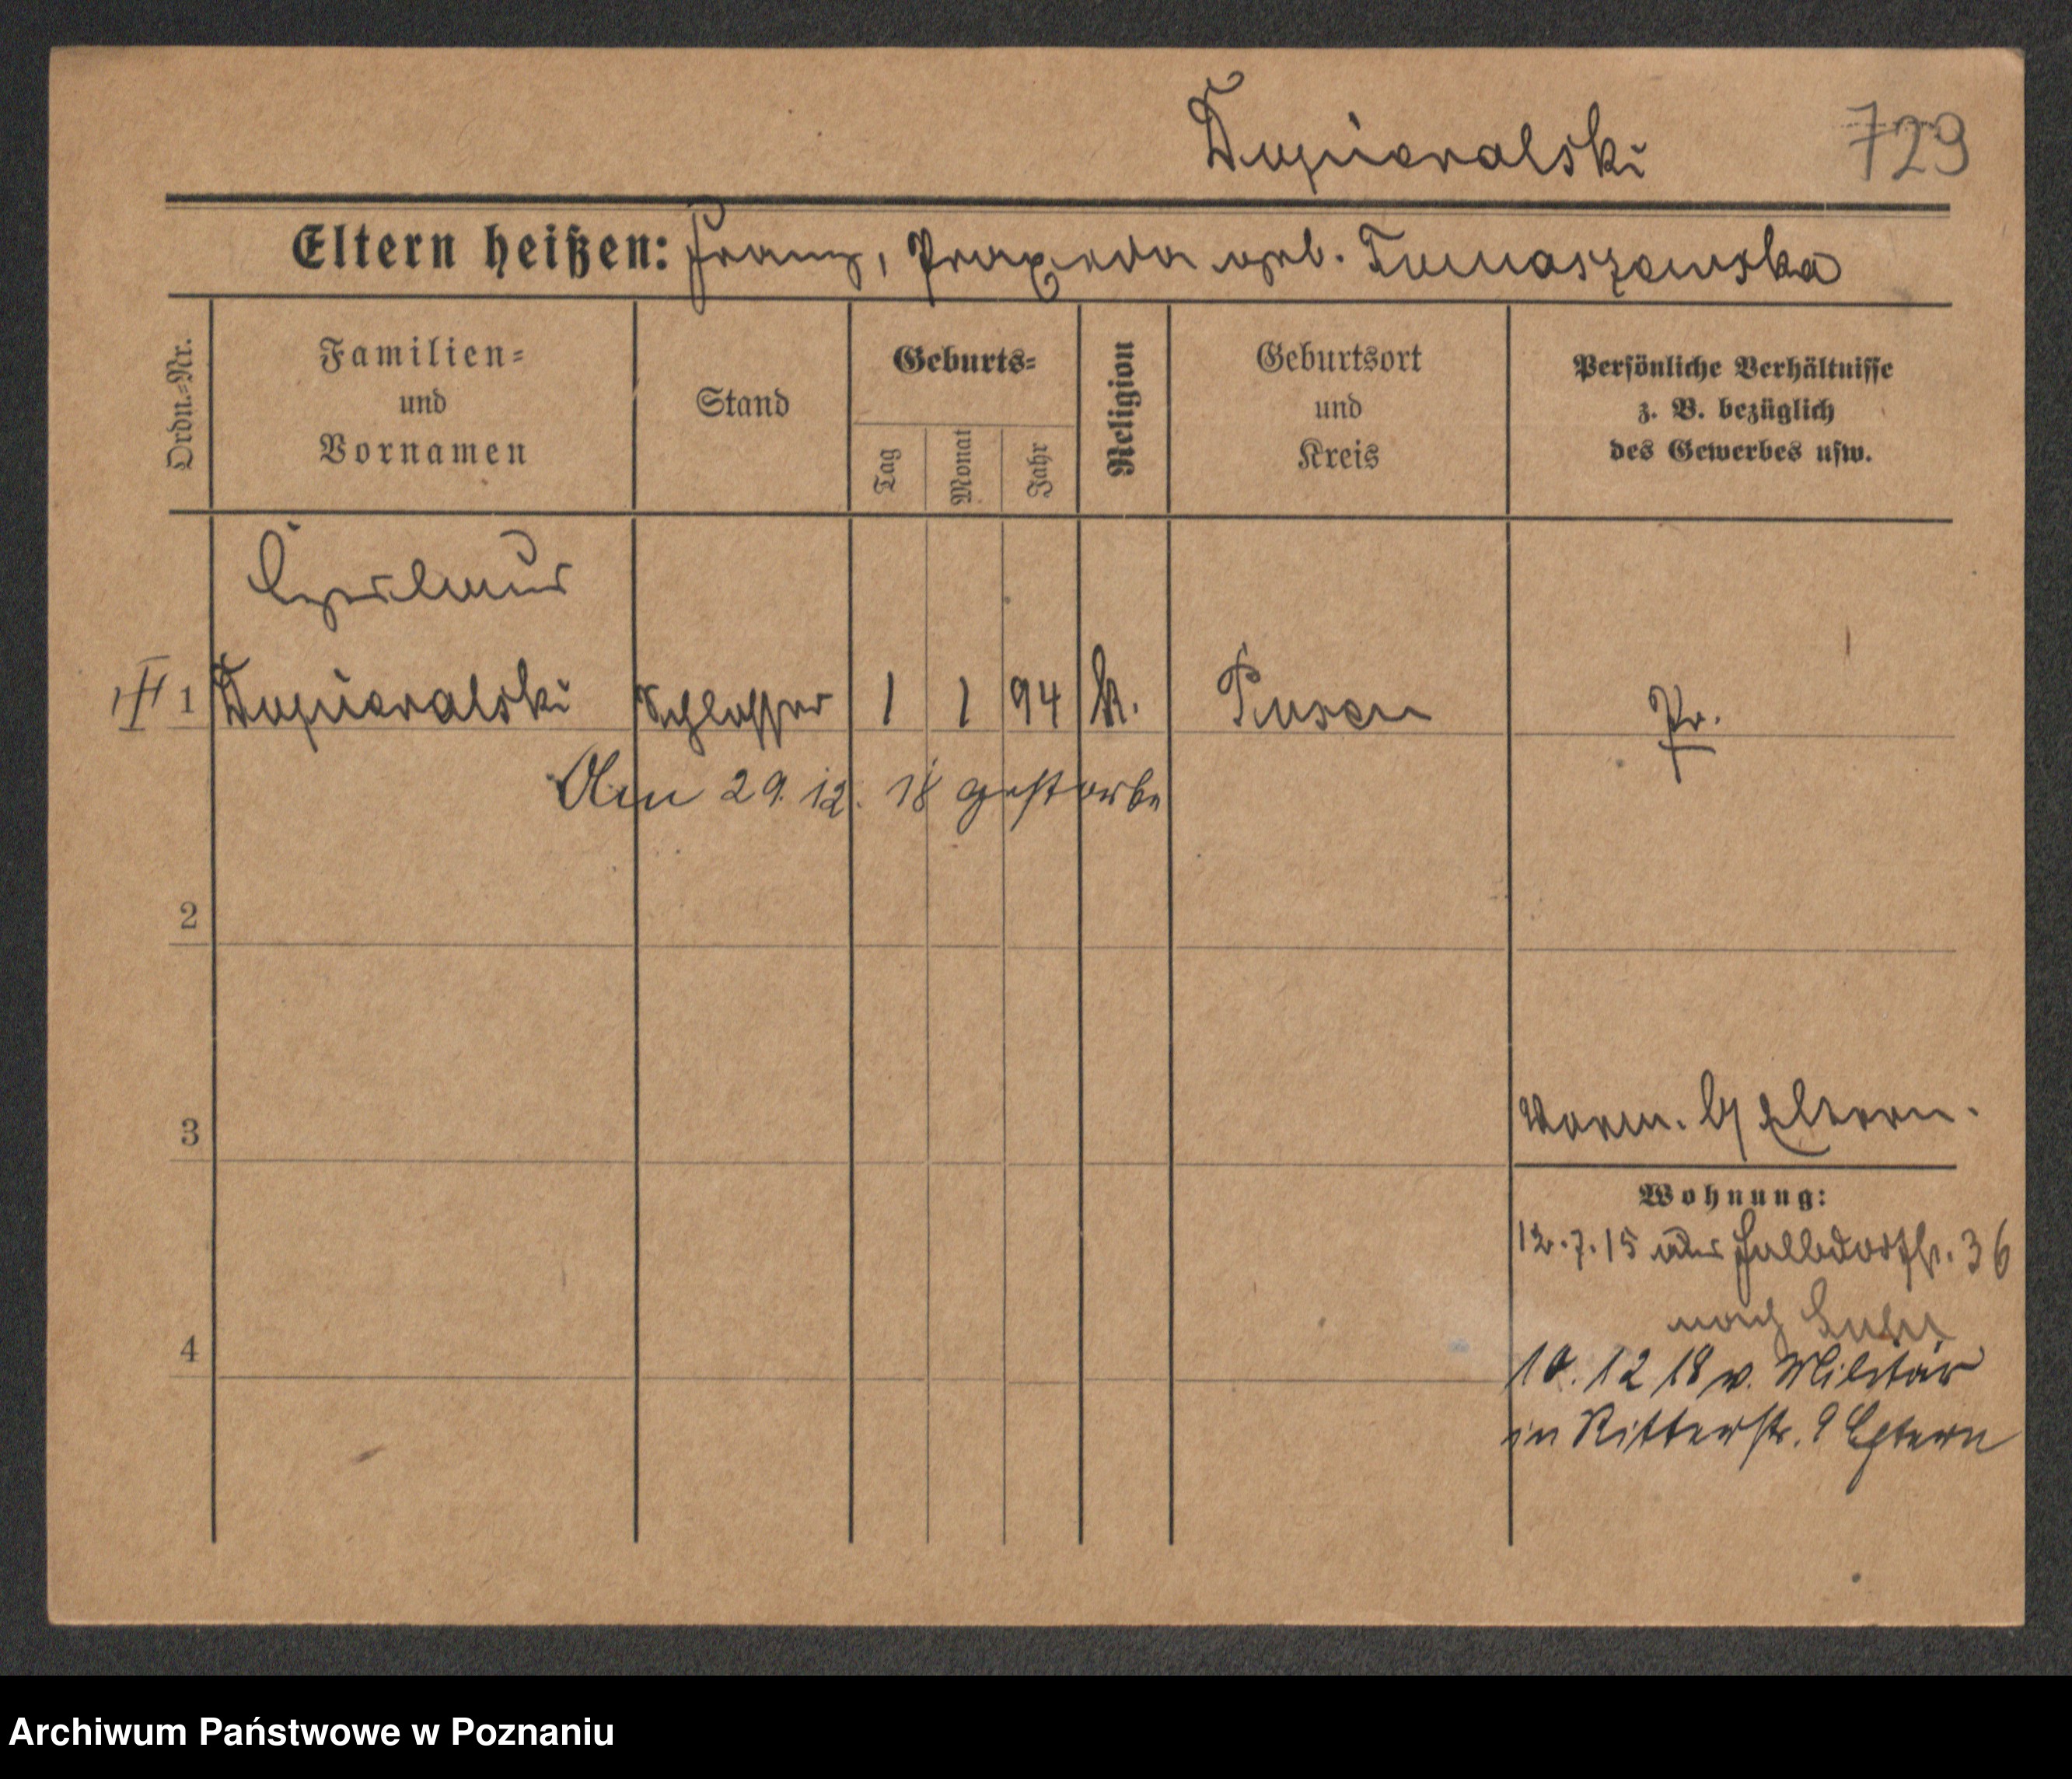 Dupieralski 729
Eltern heißen: Franz, Praxeda geb. Tomaszewska
Ordn.-Nr.
Familien-
und
Vornamen
Stand
Geburts-
Tag
Monat
Jahr
Religion
Geburtsort
und
Kreis
Persönliche Verhältnisse
z. B. bezüglich
des Gewerbes usw.
1 Dupieralski Schlosser 1 1 94 k. Posen Pr.
Am 29. 12. 18 gestorbe
2
3
Vorm. b/ Eltern.
Wohnung:
12.7.15 aus Halldorfstr. 36
nach
4
10. 12 18 v. Militär
in Ritterstr. 9 Eltern
Archiwum Państwowe w Poznaniu